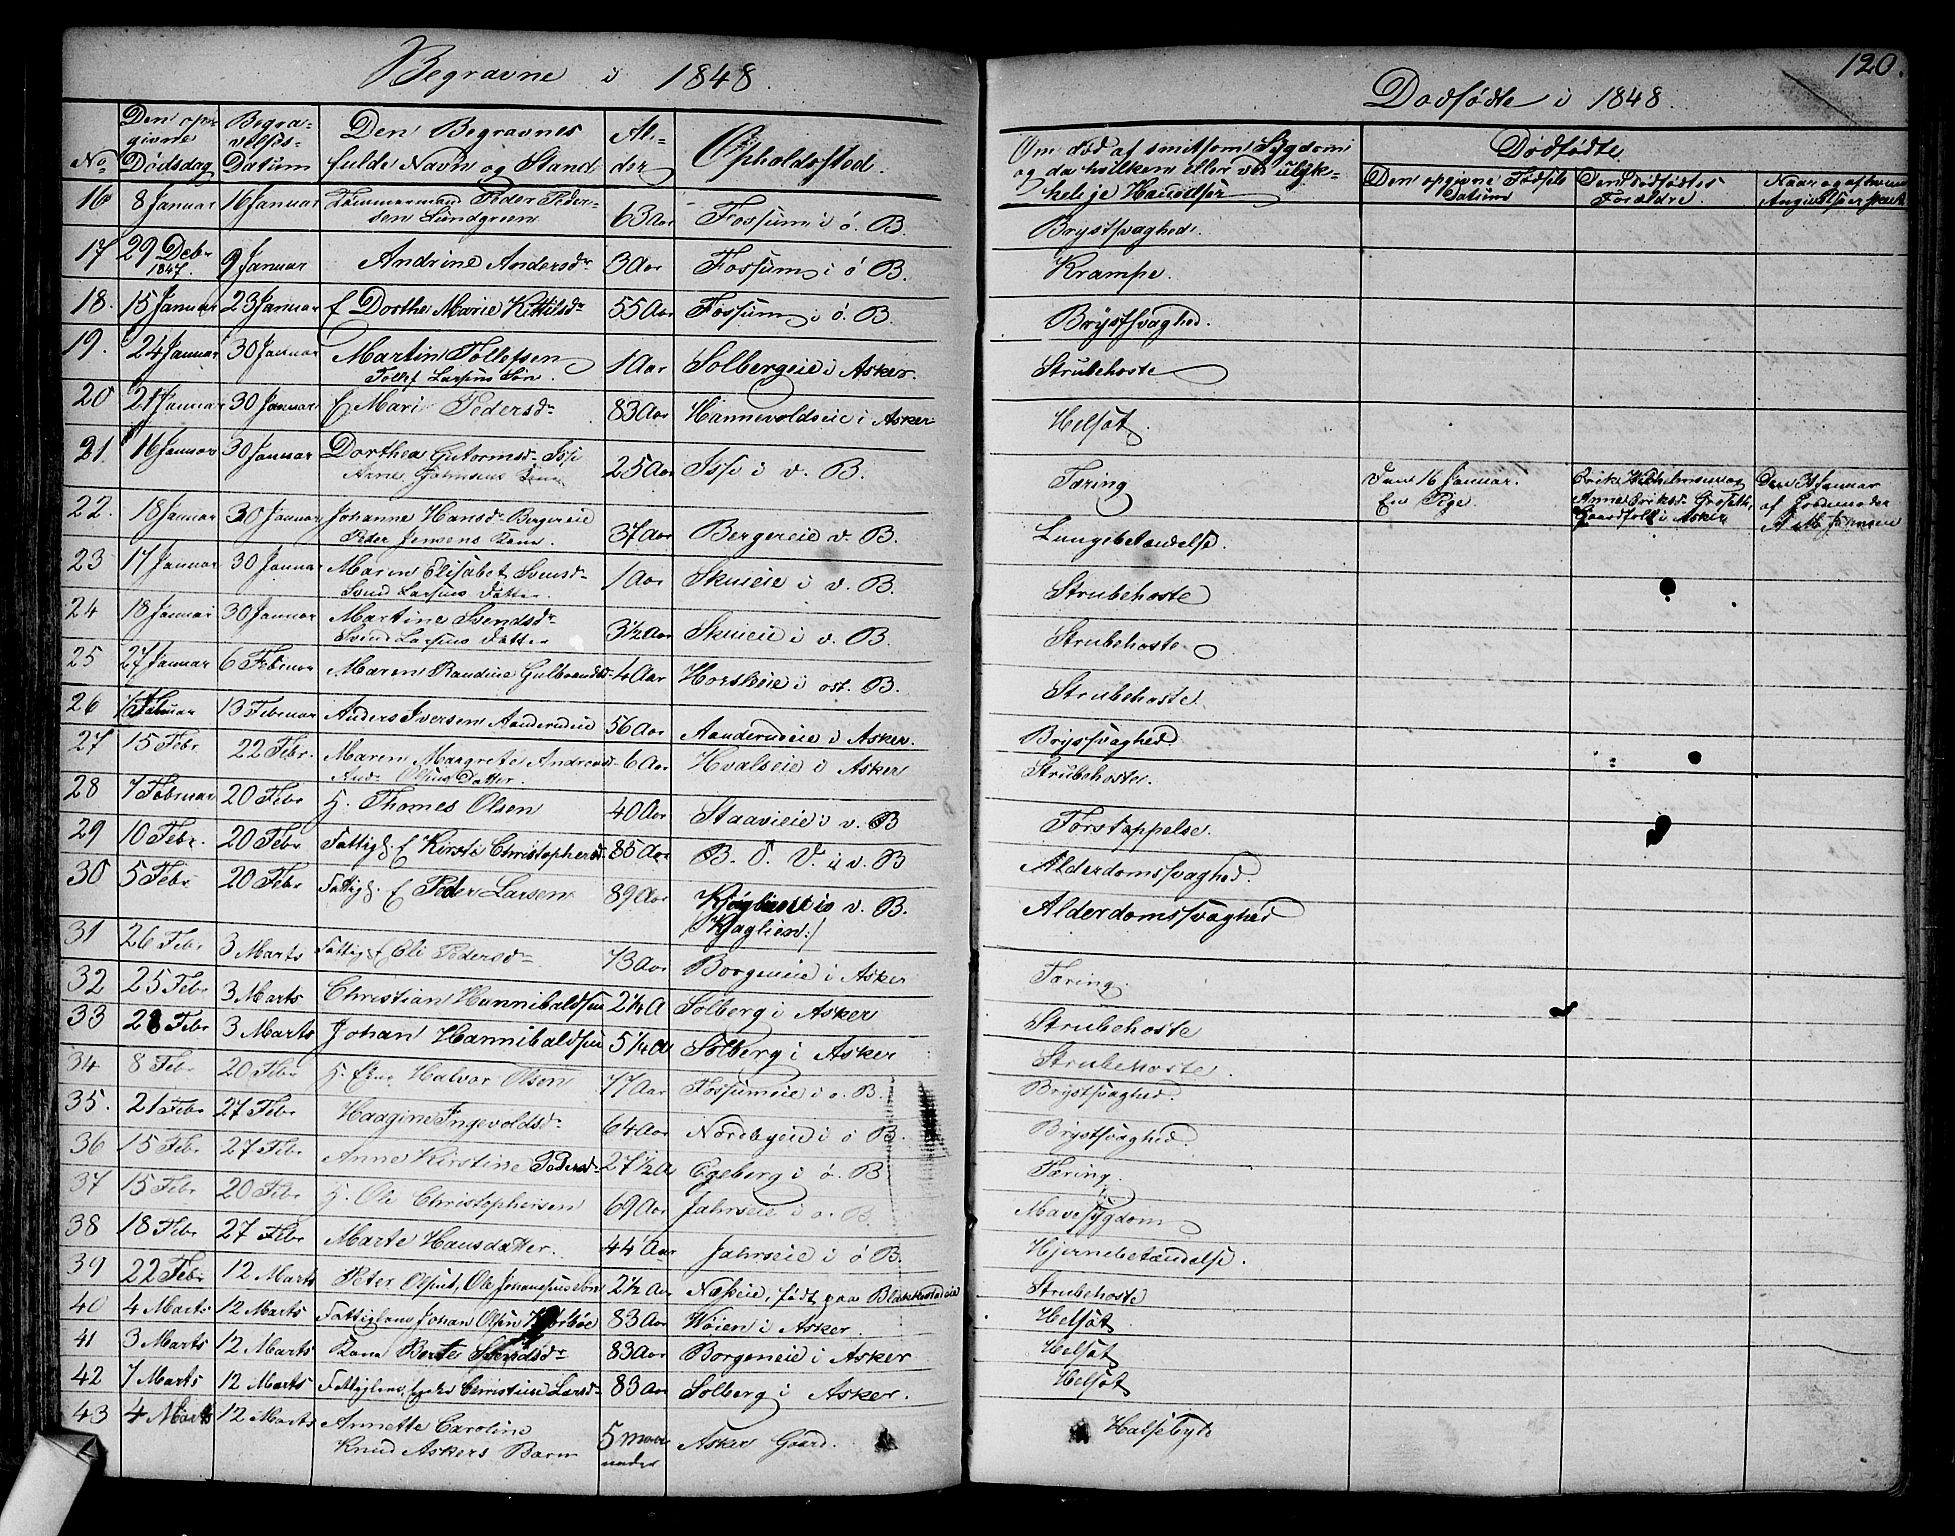 Begravne i 1848.
No
Den opgivne Dødsdag
Begravelses-Datum
Den Begravnes fulde Navn og Stand
Alder
Opholdssted.
16 8 Januar 16 Januar Tømmermand Peder Pedersen Lundgreen 63 Aar Fossum i ø. B.
17 29 Debr 1847 9 Januar Andrine Andersdr 3 Aar Fossum i ø B.
18. 15 Januar 23 Januar f Dorthe Marie Kittilsdr 55 Aar Fossum i ø. B.
19. 24 Januar 30 Januar Martin Tollefsen
Tollef Larsens Søn. 1 Aar Solbergeie i Asker.
20 21 Januar 30 Januar f Mari Pedersdr 83 Aar Hannevoldseie i Asker
21. 16 Januar 30 Januar Dorthea Gutormsdr
Arne 25 Aar i v. B.
22. 18 Januar 30 Januar Johanne Hansdr Bergereie
Peder Jensens Kone. 37 Aar Bergereie v. B.
23 17 Januar 30 Januar Maren Elisabet Svensdr
Svend Larsens Datter. 1 Aar Skuieie i v. B.
24 18 Januar 30 Januar Martine Svendsdr
Svend Larsens Datter 3½ Aar Skuieie i v. B.
25 27 Januar 6 Februar Maren Randine Gulbrandsd Aar Horskeie i øst. B.
26 Februar 13 Februar Anders Iversen Aanderudeie 56 Aar Aanderudeie i Asker.
27 15 Febr 22 Febr. Maren Margrete Andreasd
Olsens Datter. 6 Aar Hvalseie i Asker
28 7 Februar 20 Febr G. Thomes Olsen 40 Aar Staavieie i v. B
29 10 Febr. 20 Febr Fattigl. f Kirsti Christophersd 85 Aar B. O. V. i v. B
30 5 Febr 20 Febr Fattigl. f Peder Larsen 89 Aar v. B.
/:Kjaglien:/
31 26 Febr 3 Marts Fattig f Eli Pedersdr 73 Aar Borgeneie i Asker
32 25 Febr 3 Marts Christian Hannibaldsen 2¼ A Solberg i Asker
33 28 Febr 3 Marts Johan Hannibaldsen 5¼ A Solberg i Asker
34 8 Febr 20 Febr G. Halvor Olsen 77 Aar Fossumeie i ø. B.
35. 21 Febr 27 Febr Haagine Ingevoldsdr 64 Aar Nordbyeie i ø B.
36 15 Febr 27 Febr Anne Kirstine Pedersdr 27½ A Egeberg i ø. B
37 15 Febr 20 Febr G. Ole Christophersen 69 Aar Jahrseie i ø. B
38 18 Febr 27 Febr Marte Hansdatter. 44 Aar Jahrseie i ø B.
39 22 Febr 12 Marts Peter Olsen, Ole Johannesens Søn 2½ Aar Næseie, født paa
40 4 Marts 12 Marts Fattiglem Johan Olsen 83 Aar Wøien i Asker.
41 3 Marts 12 Marts Kone Berte Svendsdr 83 Aar Borgeneie i Asker
42 7 Marts 12 Marts Fattiglem, Enke Christine Larsdr 83 Aar Solberg i Asker.
43 4 Marts 12 Marts Annette Caroline
Knud Askers Barn 5 maaneder Asker Gaard.
120.
Dødfødte i 1848.
Om død af smitsom Sygdom
og da hvilken eller ved ulyk-
kelige Hændelser
Dødfødte.
Den opgivne Fødsels Datum
Den Dødfødtes Forældre.
Brystsvaghed.
Krampe.
Brystsvaghed.
Strubehoste
Helsot.
Tæring
Den 16 Januar.
En Pige.
Erik Wilhelmsen og
Anne Eriksdr
i Asker
Den 31 Januar
af Jordemoder
Lungebetændelse.
Strubehoste
Strubehoste
Strubehoste
Brystsvaghed.
Strubehoste.
Forstoppelse.
Alderdomssvaghed.
Alderdomssvaghed
Tæring.
Strubehoste
Strubehoste.
Brystsvaghed.
Brystsvaghed.
Tæring.
Mavesygdom
Hjernebetændelse.
Strubehoste
Helsot.
Helsot
Helsot
Halsebyld